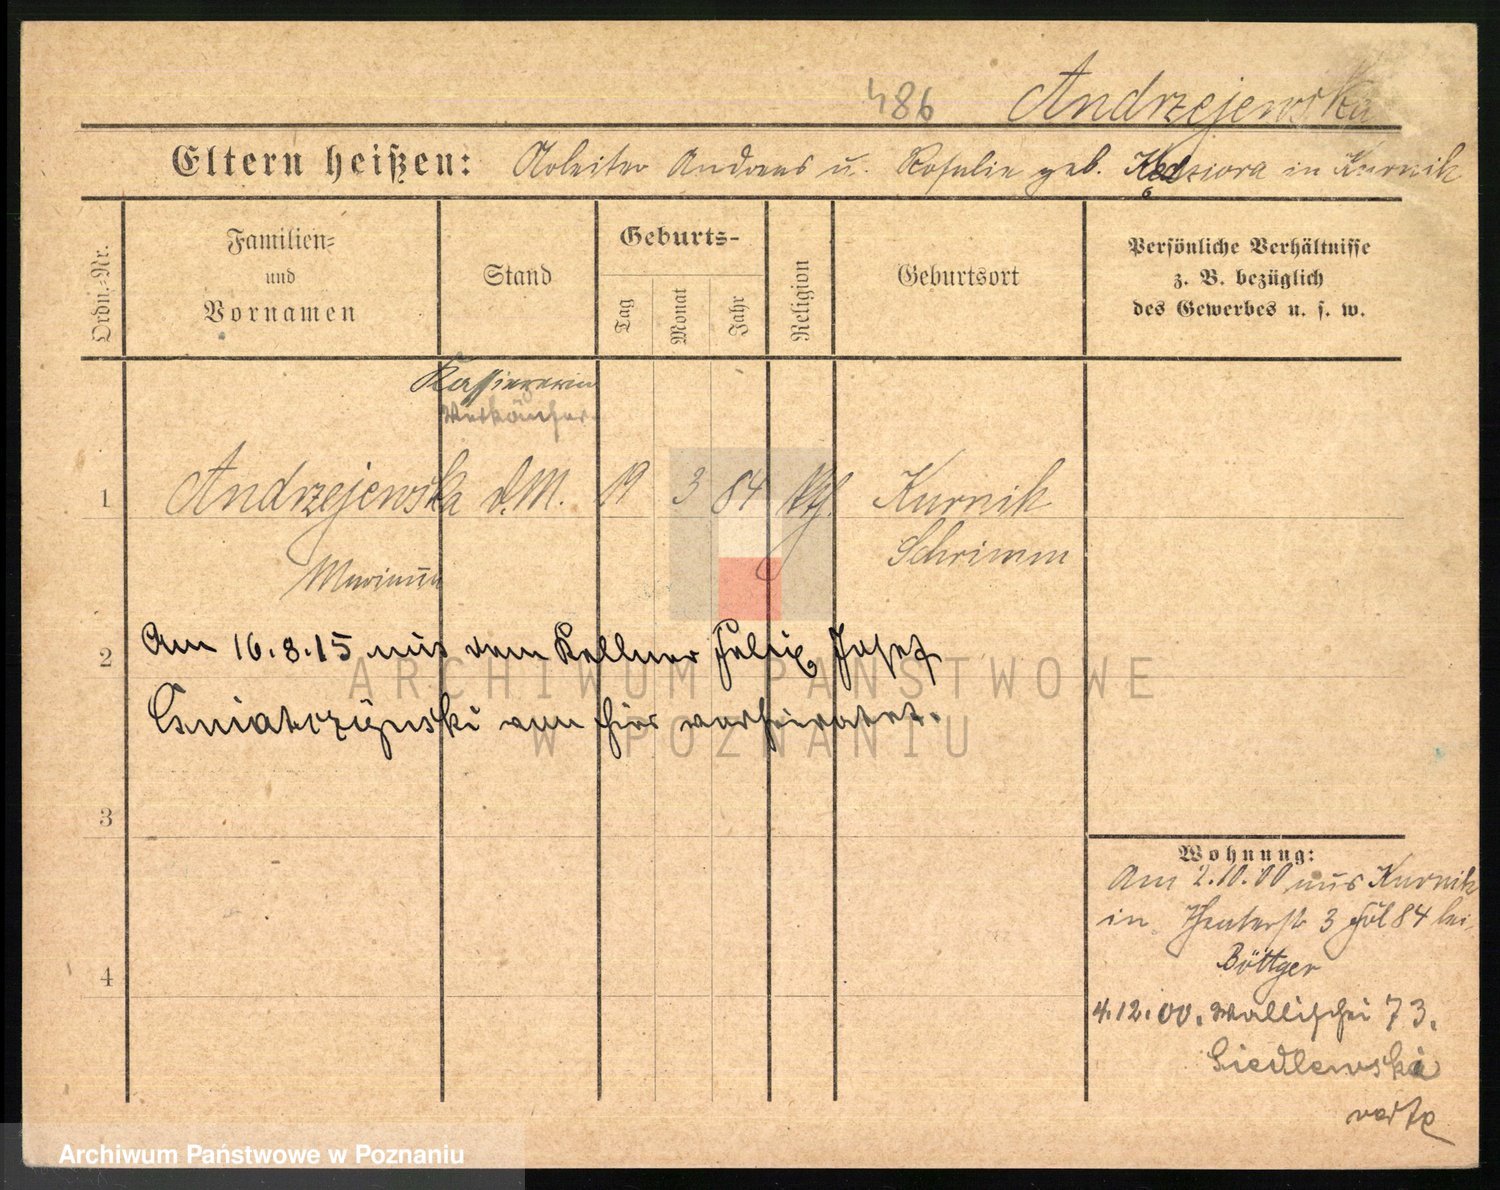 486 Andrzejewska
Eltern heißen: Arbeiter Andreas u. Rosalie geb. Kedziora in Kurnik
Ordn.-Nr.
Familien-
und
Vornamen
Stand
Geburts-
Tag
Monat
Jahr
Religion
Geburtsort
Persönliche Verhältnisse
z. B. bezüglich
des Gewerbes u. s. w.
Kassiererin
Verkäufer
1 Andrzejewska d.M. 19 3 84 kth. Kurnik
Schrimm
Marianna
2 Am 16.8.15 mit dem Kellner Felix Josef
von hier verheiratet.
3
4
Wohnung:
Am 2.10.00 aus Kurnik
in Theaterstr 3 84 bei
Böttger
4.12.00. Wallischei 73.
Siedlewski
verte
ARCHIWUM PAŃSTWOWE
W POZNANIU
Archiwum Państwowe w Poznaniu